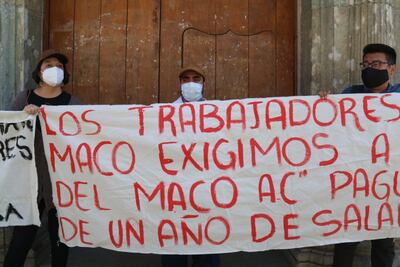 LOS TRABAJADORES
MACO EXIGIMOS A
DEL MACO AC" PAGU
DE UN AÑO DE SALA
RES
LA